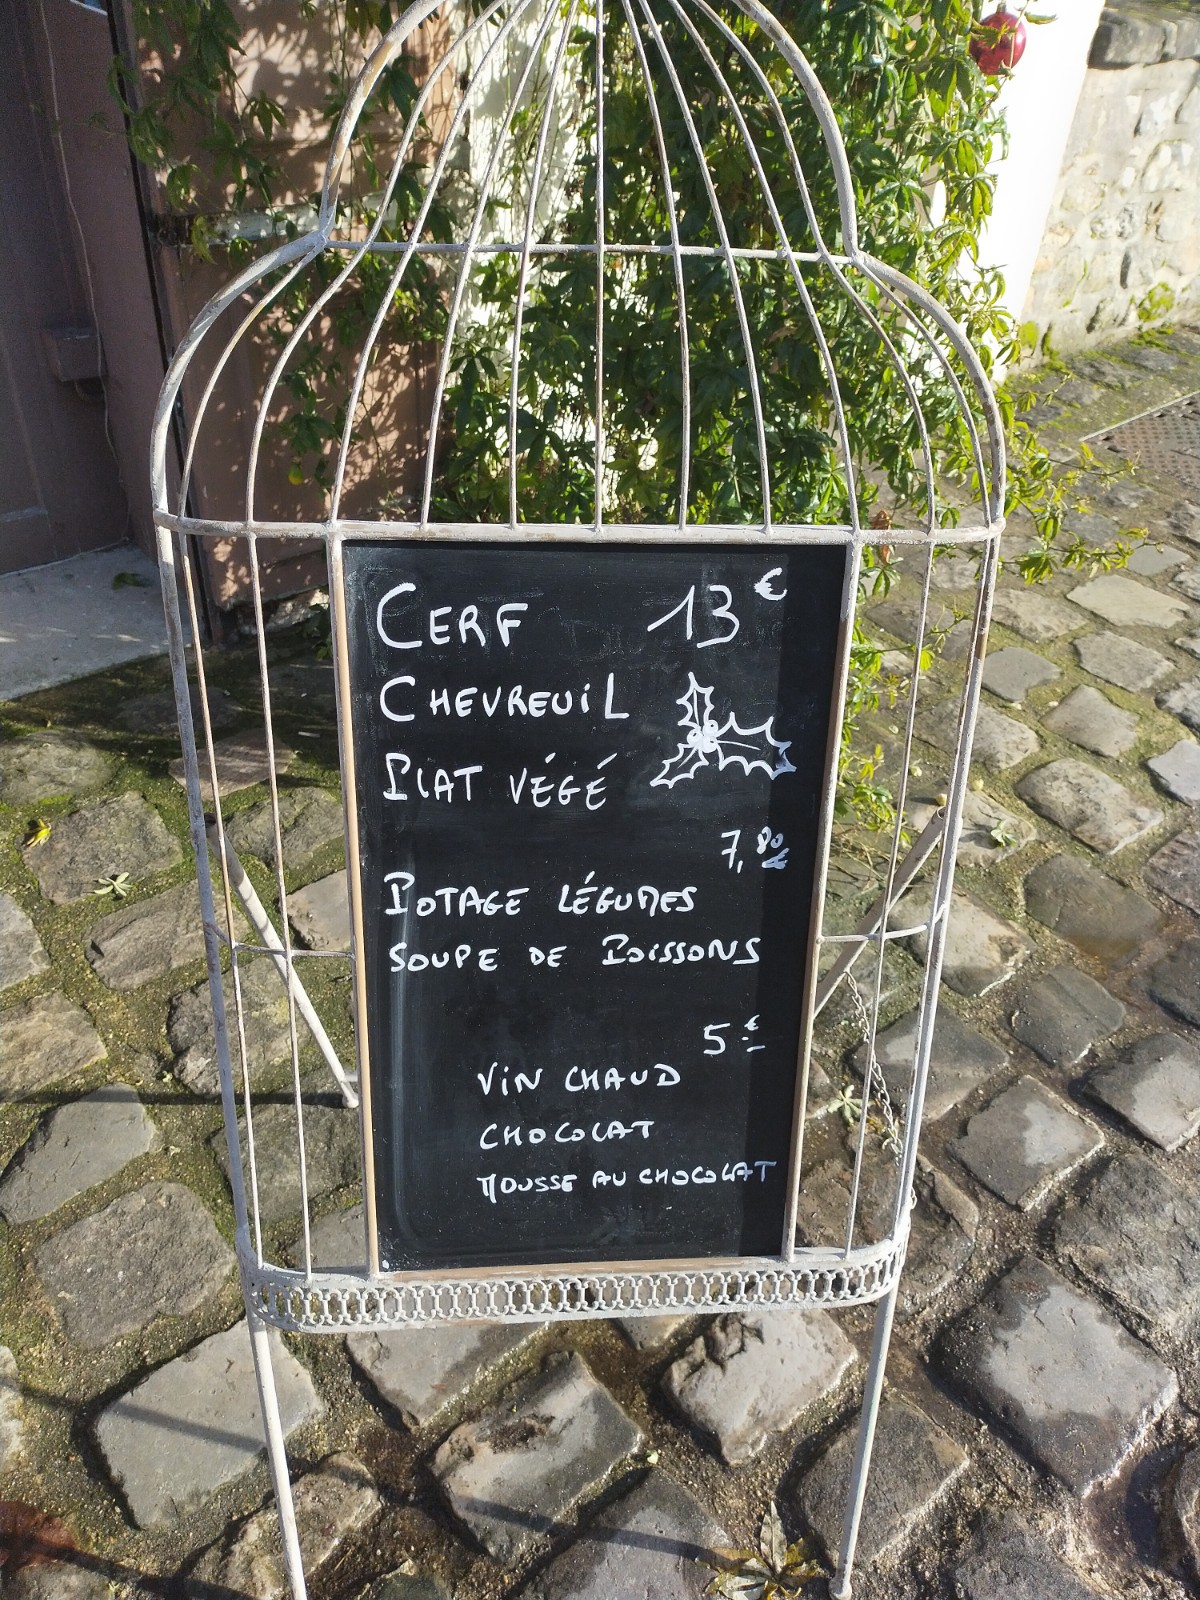 CERF 13€
CHEVREUiL
PLAT VÉGÉ
7,80€
POTAGE LÉGUMES
SOUPE DE POISSONS
5€
ViN CHAUD
CHOCOLAT
MOUSSE AU CHOCOLAT